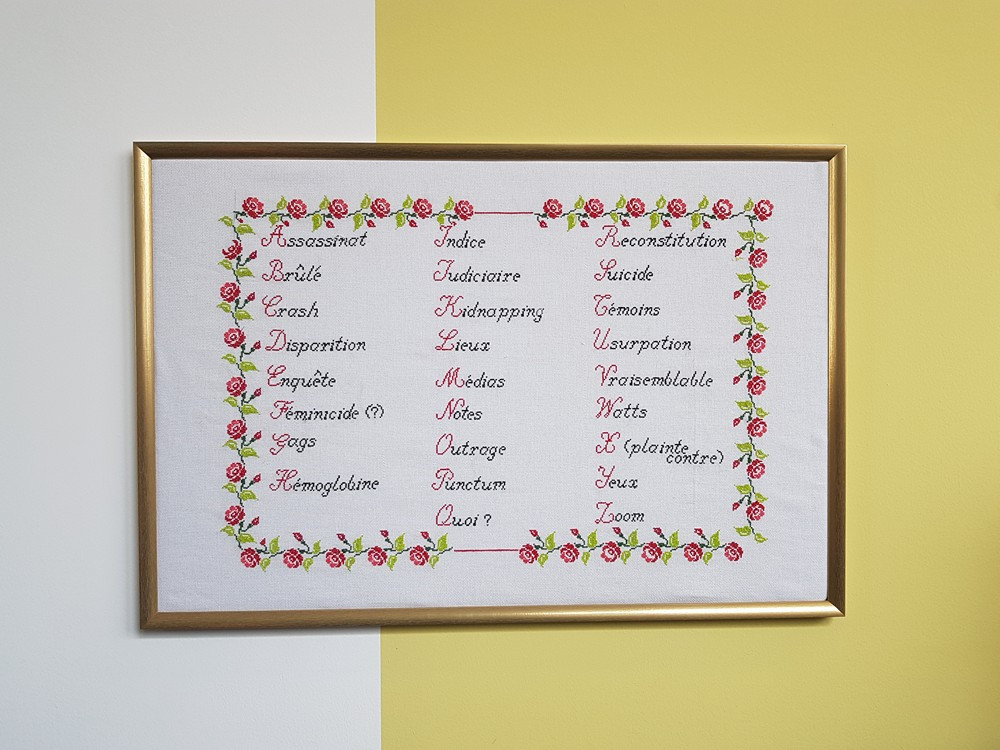 Assassinat
Brûlé
Crash
Disparition
Enquête
Féminicide (?)
Gags
Hémoglobine
Indice
Judiciaire
Kidnapping
Lieux
Médias
Notes
Outrage
Punctum
Quoi ?
Reconstitution
Suicide
Témoins
Usurpation
Vraisemblable
Watts
X (plainte
contre)
Yeux
Zoom